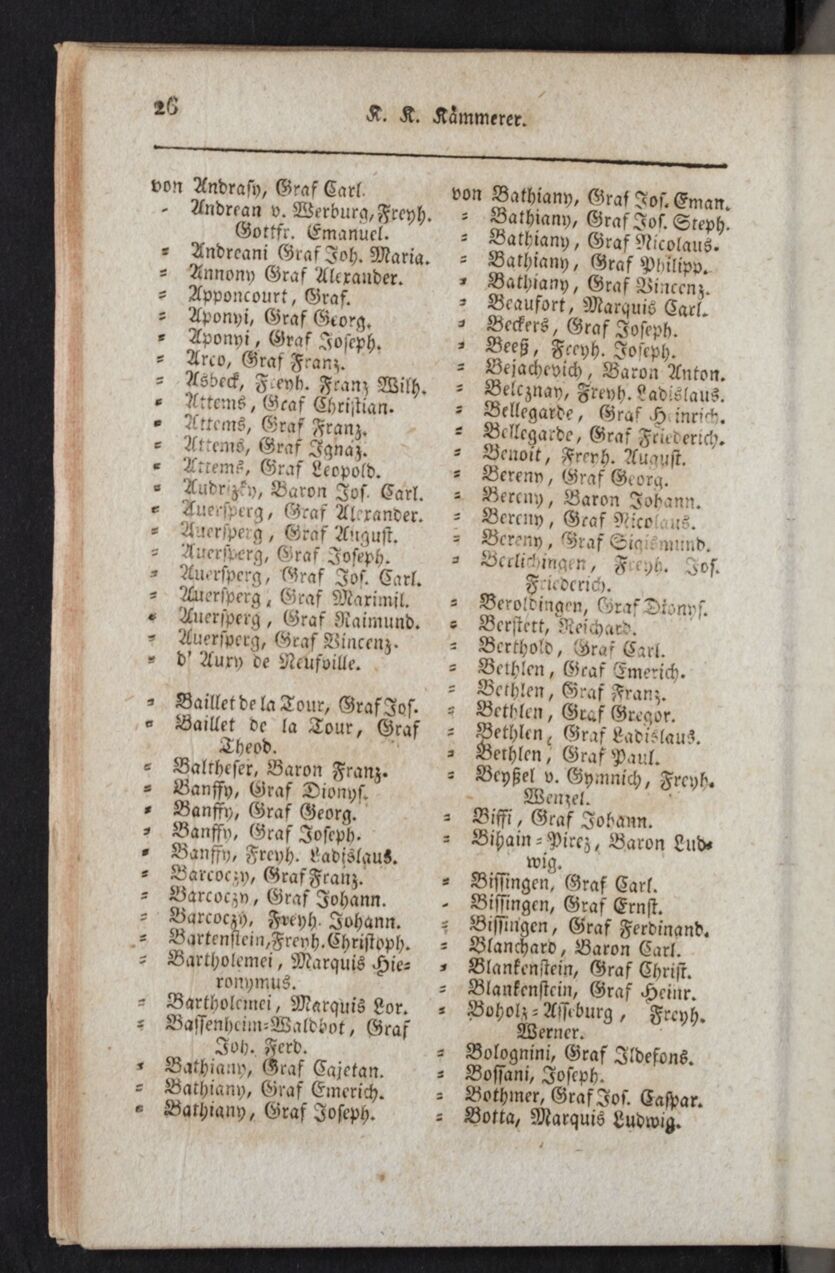 26
K. K. Kämmerer.
von Andrasy, Graf Carl.
- Andrean v. Werburg, Freyh.
Gottfr. Emanuel.
= Andreani Graf Joh. Maria.
= Annony Graf Alexander.
= Apponcourt, Graf.
= Aponyi, Graf Georg.
= Aponyi, Graf Joseph.
= Arco, Graf Franz.
= Asbeck, Freyh. Franz Wilh.
= Attems, Graf Christian.
= Attems, Graf Franz.
= Attems, Graf Ignaz.
= Attems, Graf Leopold.
= Audrizky, Baron Jos. Carl.
= Auersperg, Graf Alexander.
= Auersperg, Graf August.
= Auersperg, Graf Joseph.
= Auersperg, Graf Jos. Carl.
= Auersperg, Graf Maximil.
= Auersperg, Graf Raimund.
= Auersperg, Graf Vincenz.
= d' Aury de Neufville.
= Baillet de la Tour, Graf Jos.
= Baillet de la Tour, Graf
Theod.
= Baltheser, Baron Franz.
= Banffy, Graf Dionys.
= Banffy, Graf Georg.
= Banffy, Graf Joseph.
= Banffy, Freyh. Ladislaus.
= Barcoczy, Graf Franz.
= Barcoczy, Graf Johann.
= Barcoczy, Freyh. Johann.
= Bartenstein, Freyh. Christoph.
= Bartholemei, Marquis Hie=
ronymus.
= Bartholemei, Marquis Lor.
= Bassenheim=Waldbot, Graf
Joh. Ferd.
= Bathiany, Graf Cajetan.
= Bathiany, Graf Emerich.
= Bathiany, Graf Joseph.
von Bathiany, Graf Jos. Eman.
= Bathiany, Graf Jos. Steph.
= Bathiany, Graf Nicolaus.
= Bathiany, Graf Philipp.
= Bathiany, Graf Vincenz.
= Beaufort, Marquis Carl.
= Beckers, Graf Joseph.
= Beeß, Freyh. Joseph.
= Bejachevich, Baron Anton.
= Belcznay, Freyh. Ladislaus.
= Bellegarde, Graf Heinrich.
= Bellegarde, Graf Friederich.
= Benoit, Freyh. August.
= Bereny, Graf Georg.
= Bereny, Baron Johann.
= Bereny, Graf Nicolaus.
= Bereny, Graf Sigismund.
= Berlichingen, Freyh. Jos.
Friederich.
= Beroldingen, Graf Dionys.
= Berstett, Reichard.
= Berthold, Graf Carl.
= Bethlen, Graf Emerich.
= Bethlen, Graf Franz.
= Bethlen, Graf Gregor.
= Bethlen, Graf Ladislaus.
= Bethlen, Graf Paul.
= Beyßel v. Gymnich, Freyh.
Wenzel.
= Biffi, Graf Johann.
= Bihain=Pirez, Baron Lud=
wig.
= Bissingen, Graf Carl.
- Bissingen, Graf Ernst.
= Bissingen, Graf Ferdinand.
= Blanchard, Baron Carl.
= Blankenstein, Graf Christ.
= Blankenstein, Graf Heinr.
= Boholz=Asseburg, Freyh.
Werner.
= Bolognini, Graf Ildefons.
= Bossani, Joseph.
= Bothmer, Graf Jos. Caspar.
= Botta, Marquis Ludwig.